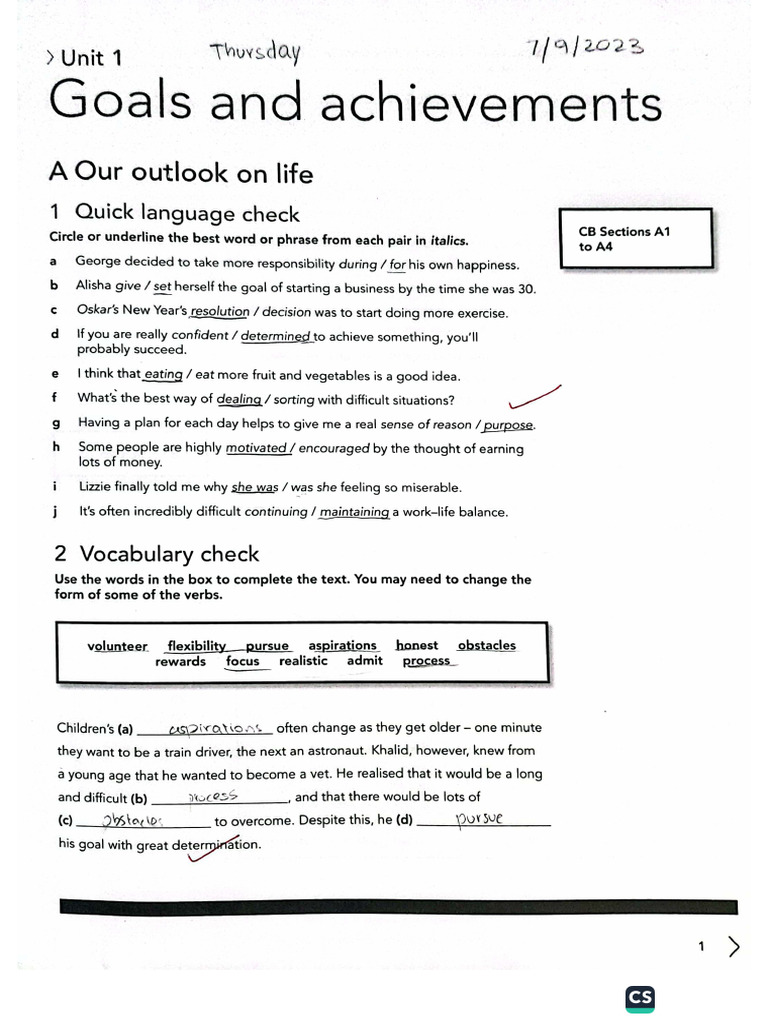 > Unit 1 Thursday 7/9/2023
Goals and achievements
A Our outlook on life
1 Quick language check
CB Sections A1
to A4
Circle or underline the best word or phrase from each pair in italics.
a George decided to take more responsibility during / for his own happiness.
b Alisha give / set herself the goal of starting a business by the time she was 30.
c Oskar's New Year's resolution / decision was to start doing more exercise.
d If you are really confident / determined to achieve something, you'll
probably succeed.
e I think that eating / eat more fruit and vegetables is a good idea.
f What's the best way of dealing / sorting with difficult situations?
g Having a plan for each day helps to give me a real sense of reason / purpose.
h Some people are highly motivated / encouraged by the thought of earning
lots of money.
i Lizzie finally told me why she was / was she feeling so miserable.
j It's often incredibly difficult continuing / maintaining a work–life balance.
2 Vocabulary check
Use the words in the box to complete the text. You may need to change the
form of some of the verbs.
volunteer flexibility pursue aspirations honest obstacles
rewards focus realistic admit process
Children's (a) aspirations often change as they get older – one minute
they want to be a train driver, the next an astronaut. Khalid, however, knew from
a young age that he wanted to become a vet. He realised that it would be a long
and difficult (b) process, and that there would be lots of
(c) obstacles to overcome. Despite this, he (d) pursue
his goal with great determination.
1 >
CS